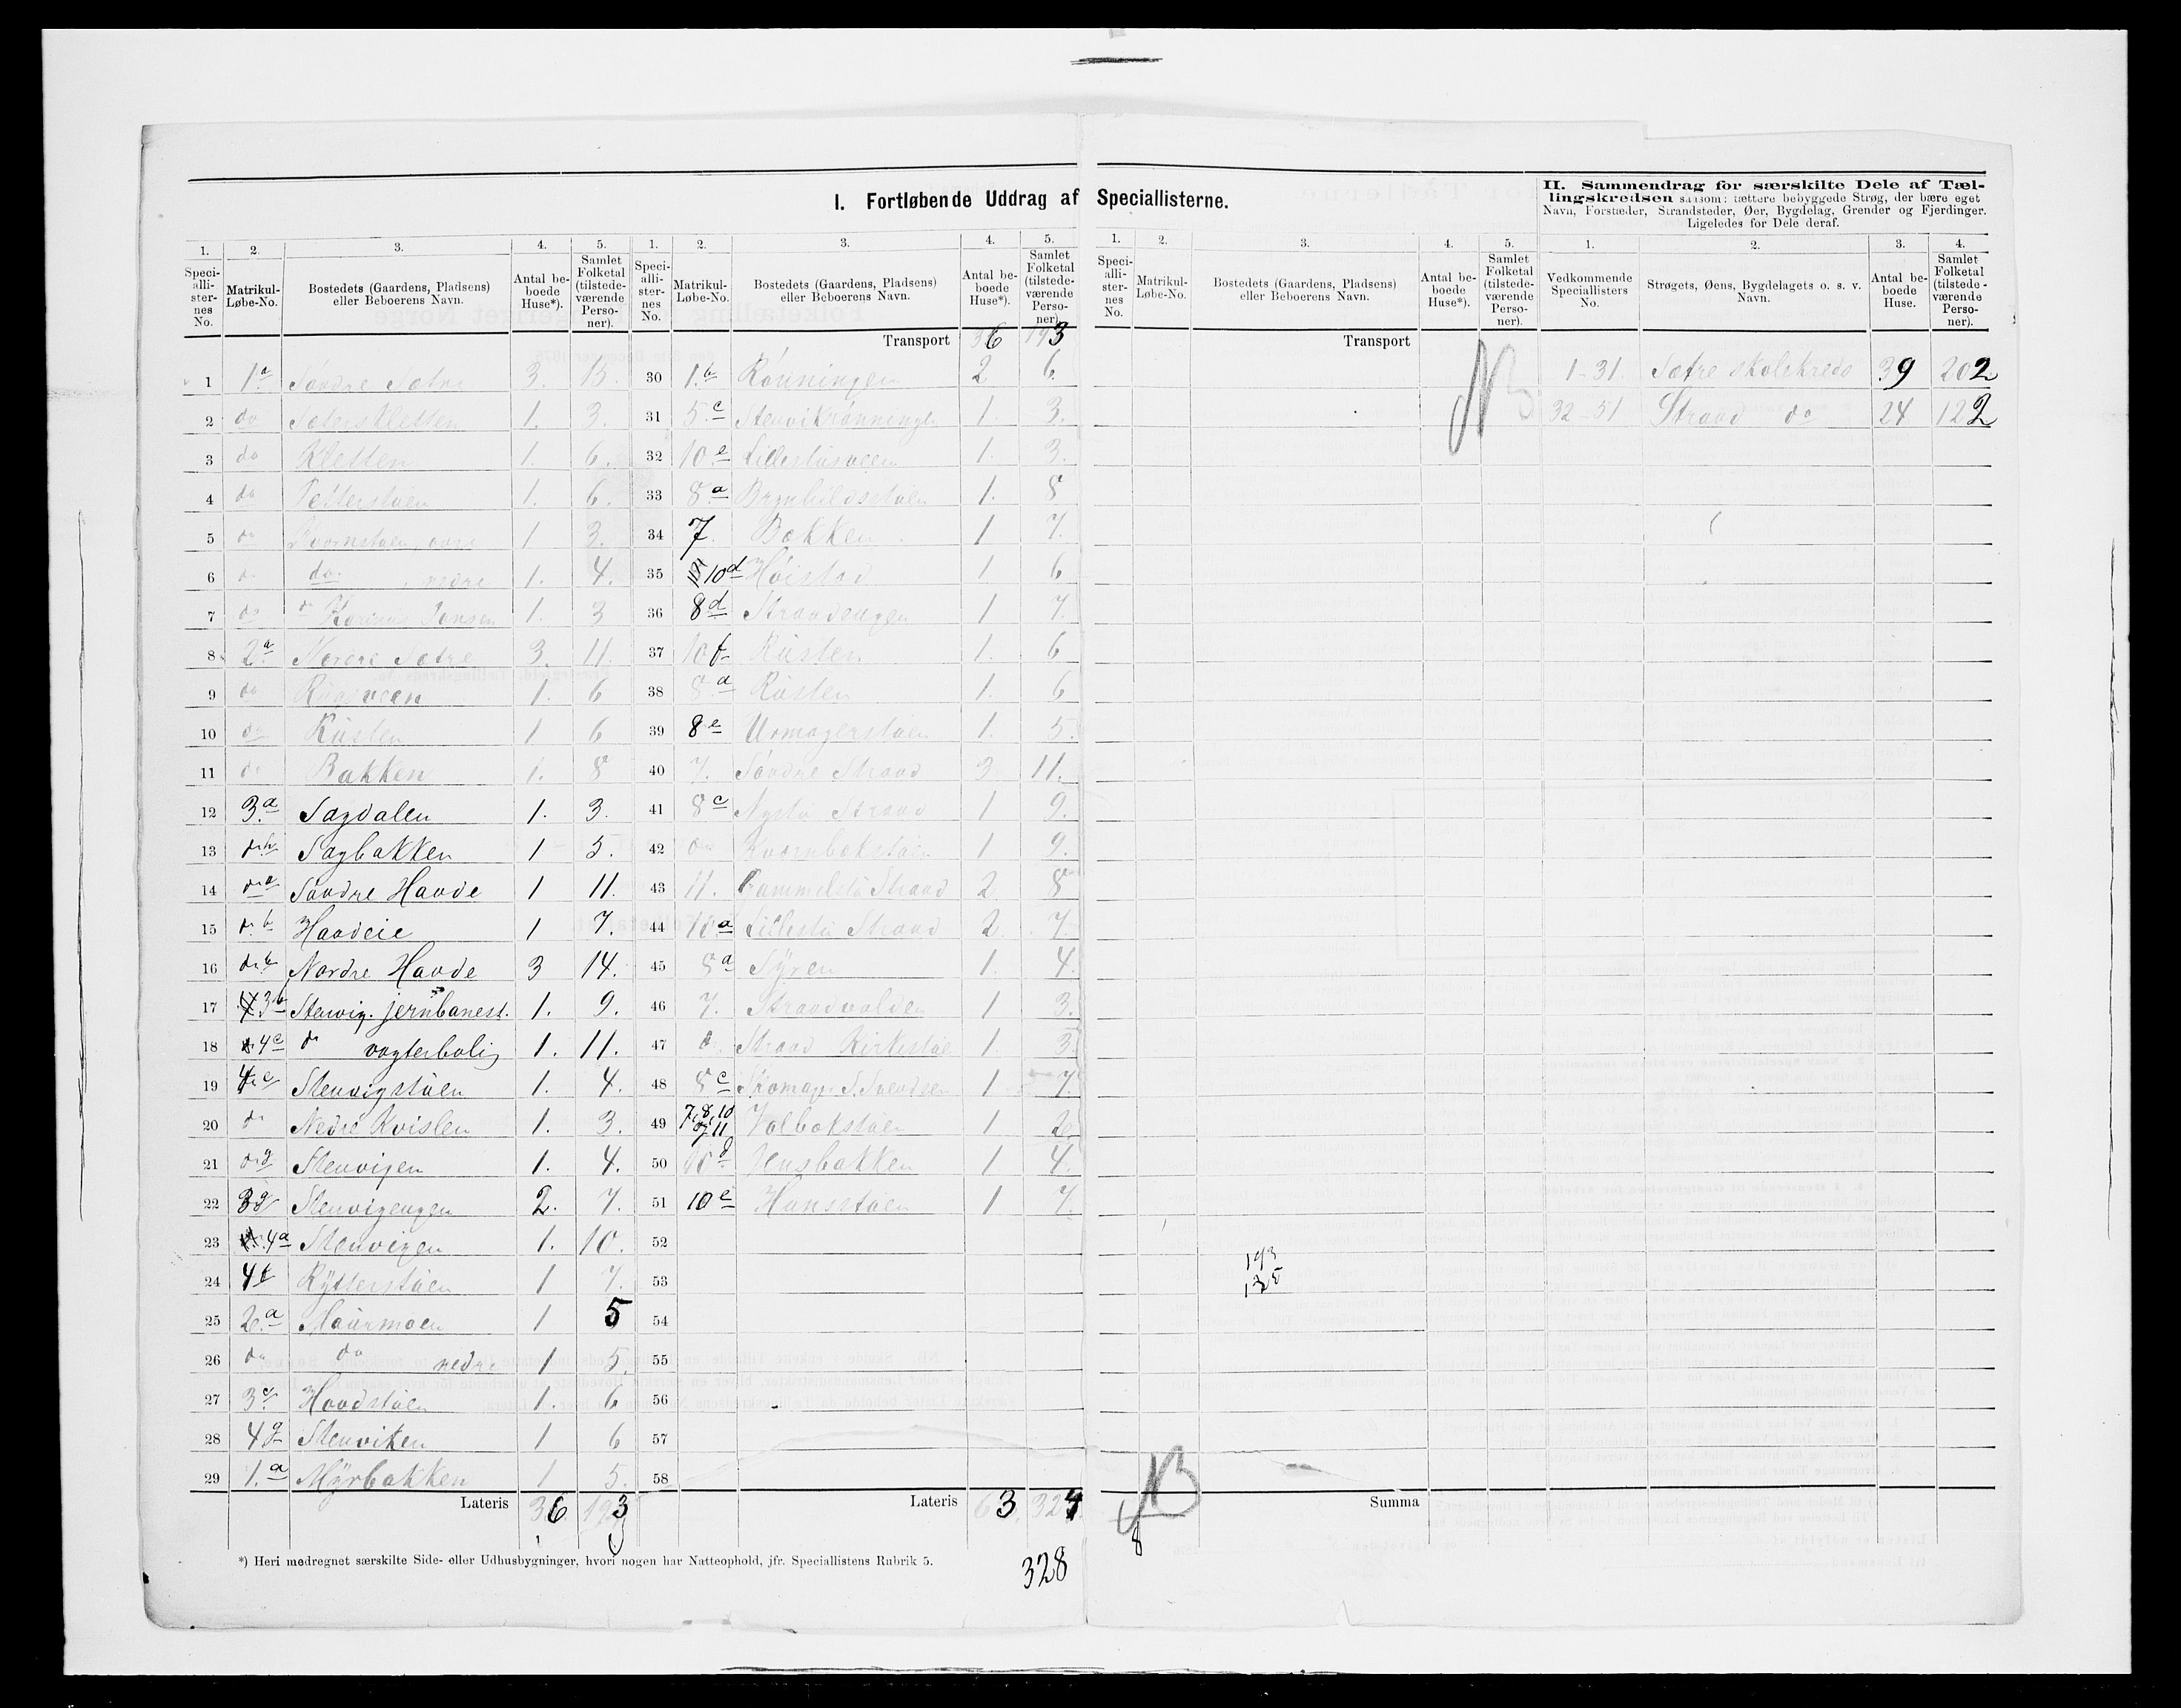 I. Fortløbende Uddrag af Speciallisterne.
II. Sammendrag for særskilte Dele af Tæl-
lingskredsen saasom: tættere bebyggede Strøg, der bære eget
Navn, Forstæder, Strandsteder, Øer, Bygdelag, Grender og Fjerdinger.
Ligeledes for Dele deraf.
1. 2. 3. 4. 5. 1. 2. 3. 4. 5. 1. 2. 3. 4. 5. 1. 2. 3. 4.
Speci-alli-ster-nes No. Matrikul-Løbe-No. Bostedets (Gaardens, Pladsens) eller Beboerens Navn. Antal be-boede Huse*). Samlet Folketal (tilstede-værende Perso-ner).
Speci-alli-ster-nes No. Matrikul-Løbe-No. Bostedets (Gaardens, Pladsens) eller Beboerens Navn. Antal be-boede Huse*). Samlet Folketal (tilstede-værende Perso-ner).
Speci-alli-ster-nes No. Matrikul-Løbe-No. Bostedets (Gaardens, Pladsens) eller Beboerens Navn. Antal be-boede Huse*). Samlet Folketal (tilstede-værende Perso-ner).
Vedkommende Speciallisters No. Strøgets, Øens, Bygdelagets o. s. v. Navn. Antal be-boede Huse. Samlet Folketal (tilstede-værende Perso-ner).
1 1a Søndre Sætre 3. 15.
2 do Sætreskletten 1. 3.
3 do Kletten 1. 6.
4 do Petterstuen 1. 6.
5 do 1 3.
6 do do. nedre 1. 4.
7 do do Jensen 1. 3
8 2a Nordre Sætre 3. 11.
9 do 1. 6
10 do Rusten 1 6
11 do Bakken 1. 8
12 3.a Sagdalen 1. 3.
13 do b Sagbakken 1 5.
14 do a Søndre Haode 1 11.
15 do b Haodeie 1 7.
16 do b Nordre Haode 3 14.
17 3b Stenvig. jernbanest. 1. 9.
18 4c do vogterbolig 1. 11.
19 4c Stenvigstuen 1. 4.
20 do Nedre Kvislen 1. 3.
21 do g Stenvigen 1. 4.
22 3g Stenvigengen 2. 7.
23 4a Stenvigen 1. 10.
24 4f Rytterstuen 1 7.
25 2.a Maurmoen 1 5
26 do do nedre 1 5.
27 3c Haodstuen 1. 6
28 4g Stenviken 1 6
29 1.a Myrbakken 1 5.
Lateris 36 193
Transport 36 193
30 1.b Rønningen 2 6.
31 5.c 1. 3.
32 10.e 1. 3.
33 8.a Brynhildsstuen 1. 8
34 7. Bækken 1 7.
35 10d Høistad 1 6
36 8d Strandengen 1 7.
37 10f Rusten 1. 6
38 8.a Rusten 1. 6
39 8e Urmagerstuen 1. 5.
40 7. Søndre Strand 3 11.
41 8c Nystu Strand 1 9.
42 do Kvernbækstuen 1 9.
43 11. Gammelstu Strand 2 8
44 10a Lillestu Strand 2. 7.
45 8a 1. 4.
46 7. Strandvolden 1 3.
47 do Strand Kirkestue 1. 3
48 8c Skomag. S. Svendsen 1 7.
49 7, 8, 10 og 11 Volbækstuen 1 2
50 10g Jensbakken 1 4.
51 10e Hansstuen 1 7.
52
53
54
55
56
57
58
Lateris 63 324
328
Transport
NB
193
135
NB
8
Summa
1-31. Sætre skolekreds 39 202
32-51 Strand do 24 122
*) Heri medregnet særskilte Side- eller Udhusbygninger, hvori nogen har Natteophold, jfr. Speciallistens Rubrik 5.